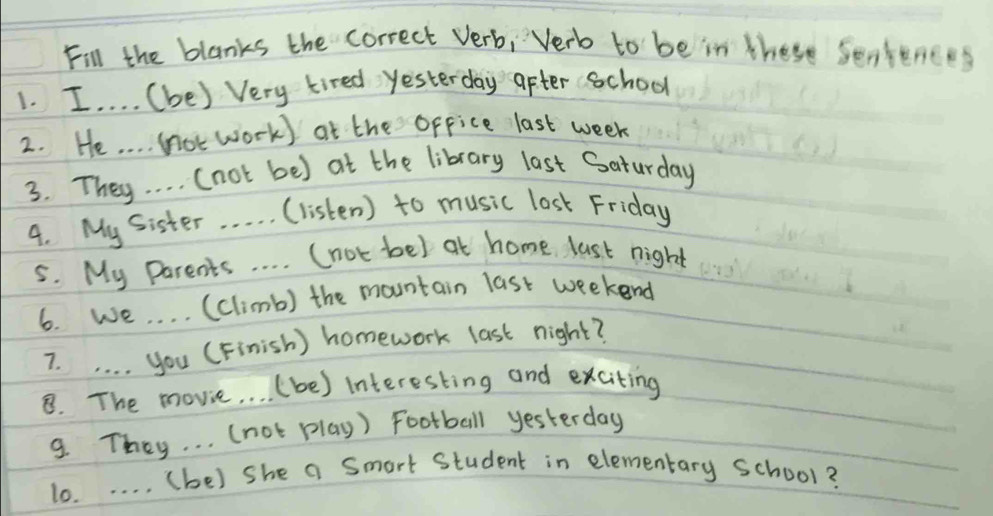 Fill the blanks the correct Verb, Verb to be in these Sentences
1. I.... (be) Very tired yesterday after school
2. He .... (not work) at the office last week
3. They .... (not be) at the library last Saturday
4. My Sister ..... (listen) to music last Friday
5. My Parents .... (not be) at home last night
6. We .... (Climb) the mountain last weekend
7. .... you (Finish) homework last night?
8. The movie .... (be) Interesting and exciting
9. They ... (not play) Football yesterday
10. .... (be) She a Smart Student in elementary School?